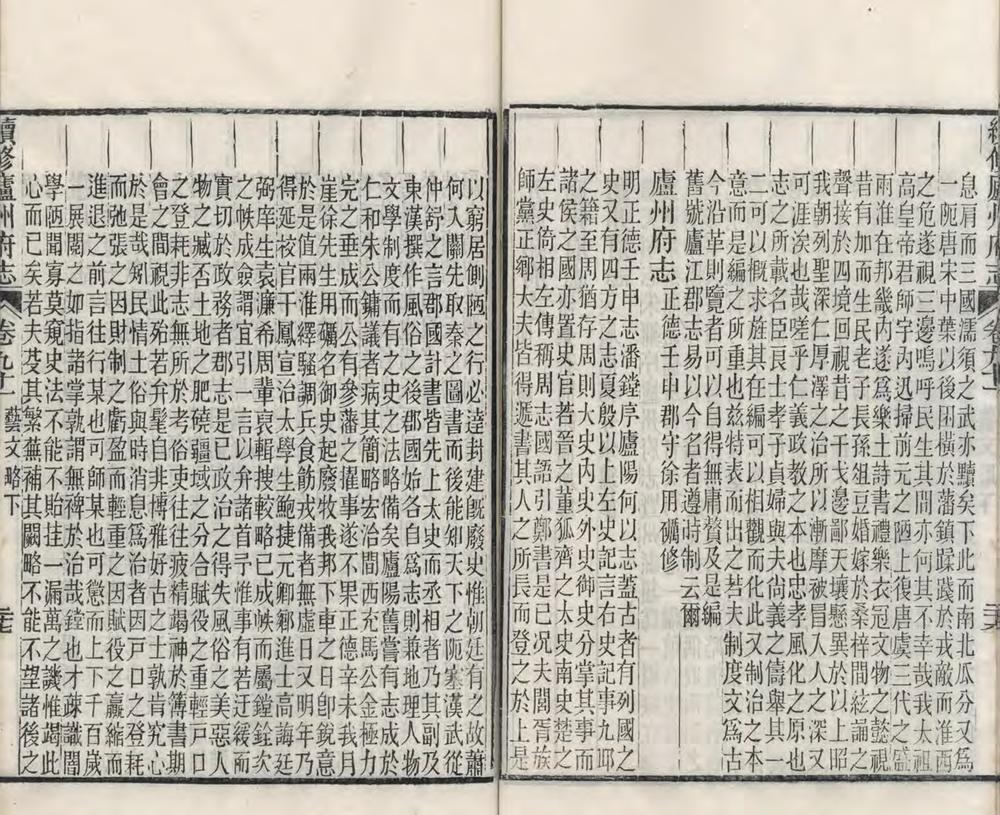 續修廬州府志
息肩而三國濡須之武亦黷矣下此而南北瓜分又為
一阨唐宋中葉以後士田橫於藩鎮蹂踐於戎敵而淮西
之危遂視三邊嗚呼民生其間亦何其不幸哉我太祖
高皇帝君師宇內汛掃前元之陋上復唐虞三代之盛
兩淮在邦畿內遂為樂土詩書禮樂衣冠文物之懿視
昔有加而生民老子長孫俎豆婚嫁於桑梓間絃誦之
聲接於四境回視昔之干戈邊鄙天壤懸異於以上昭
我朝列聖深仁厚澤之治所以漸摩被冒人人之深又
可涯涘也哉嗟乎仁義政教之本也忠孝風化之原也
志之所載名臣良士孝子貞婦與夫尚義之儔舉其一
二可以概求旌其在編可以相觀而化此又制治之本
意而是編之所重也茲特表而出之若夫制度文為古
今沿革則覽者可以自得無庸贅及是編
舊號廬江郡易志以今名者遵時制云爾
廬州府志 正德壬申郡守徐用礪修
明正德壬申志潘鏜序廬陽何以志蓋古者有列國之
史又有四方之志夏殷以上左史記言右史記事九邱
之籍至周猶存周則大史內史外史御史分掌其事而
諸侯之國亦置史官若晉之董狐齊之太史南史楚之
左史倚相左傳稱周志國語引鄭書是已况夫閭胥族
師黨正鄉大夫皆得遞書其人之所長而登之於上是
以窮居側陋之行必達封建既廢史惟朝廷有之故蕭
何入關先取秦之圖書而後能知天下之阨塞漢武從
仲舒之言郡國計書皆先上太史而丞相者乃其副及
東漢撰作風俗之後郡國始各自為志則兼地理人物
文學制度而有之史之法略備矣廬陽舊嘗有志成於
仁和朱公鏞議者病其簡略宏治間西充馬公金極力
完之垂成而公有參藩之擢事遂不果正德辛未我月
崖徐先生用礪名御史起廢牧我邦下車之日卽銳意
於是值兩淮繹騷調兵食飭戎備者無虛日又明年乃
得延校官干鳳宣治太學生鮑捷元卿鄉進士高誨廷
弼庠生袁濂希周輩裒輯搜較略已成帙而屬鏜銓次
之帙成僉謂宜引一言以弁諸首予惟事有若迂緩而
實切於政務者郡志是已政治之得失風俗之美惡人
物之臧否土地之肥磽疆域之分合賦役之重輕戶口
之登耗非志無所於考俗吏往往疲精竭神於簿書期
會之間視此殆若弁髦自非博雅好古之士孰肯究心
於是哉矧民情土俗與時消息為治者因戶口之登耗
而弛張之因財制之虧盈而輕重之因賦役之贏縮而
進退之前言往行某也可師某也可懲而上下千百歲
一展閱之如指諸掌孰謂無裨於治哉鏜也才疎識闇
學陋聞寡莫窺史法不能不貽挂一漏萬之譏惟竭此
心而已矣若夫芟其繁蕪補其闕略不能不望諸後之
續修廬州府志 卷九十一 藝文略下 三七